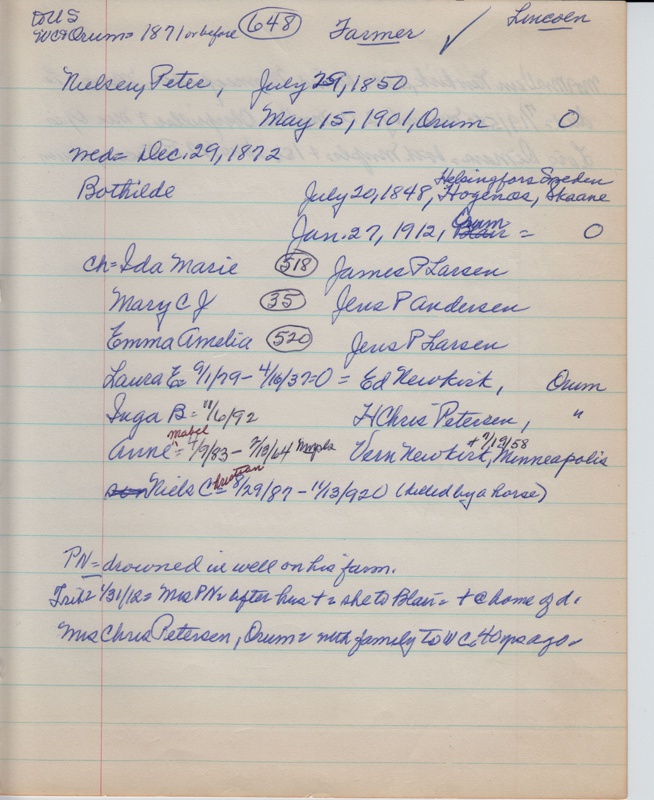 to US
WC + Orum = 1871 or before (648) Farmer ✓ Lincoln
Nielsen, Peter, July 29, 1850
May 15, 1901, Orum O
md = Dec. 29, 1872
Helsingfors Sweden
Bothilde July 20, 1848, Hogenas, Skaane
Orum
Jan. 27, 1912, Blair = O
Ch = Ida Marie (518) James P Larsen
Mary C J (35) Jens P Andersen
Emma Amelia (520) Jens P Larsen
Laura E = 9/1/79 - 4/16/37=O = Ed Newkirk, Orum
Inga B = 11/6/92 H Chris Petersen, "
Mabel + 7/19/58
Anne = 4/9/83 - 2/13/64 Mmpls Vern Newkirk, Minneapolis
hristian
son Niels C = 8/29/87 - 11/13/920 (killed by a horse)
PN = drowned in well on his farm.
Trib = 1/31/12 = Mrs PN = after hus + = she to Blair = + @ home of d.
Mrs Chris Petersen, Orum = with family to WC 40 yrs ago